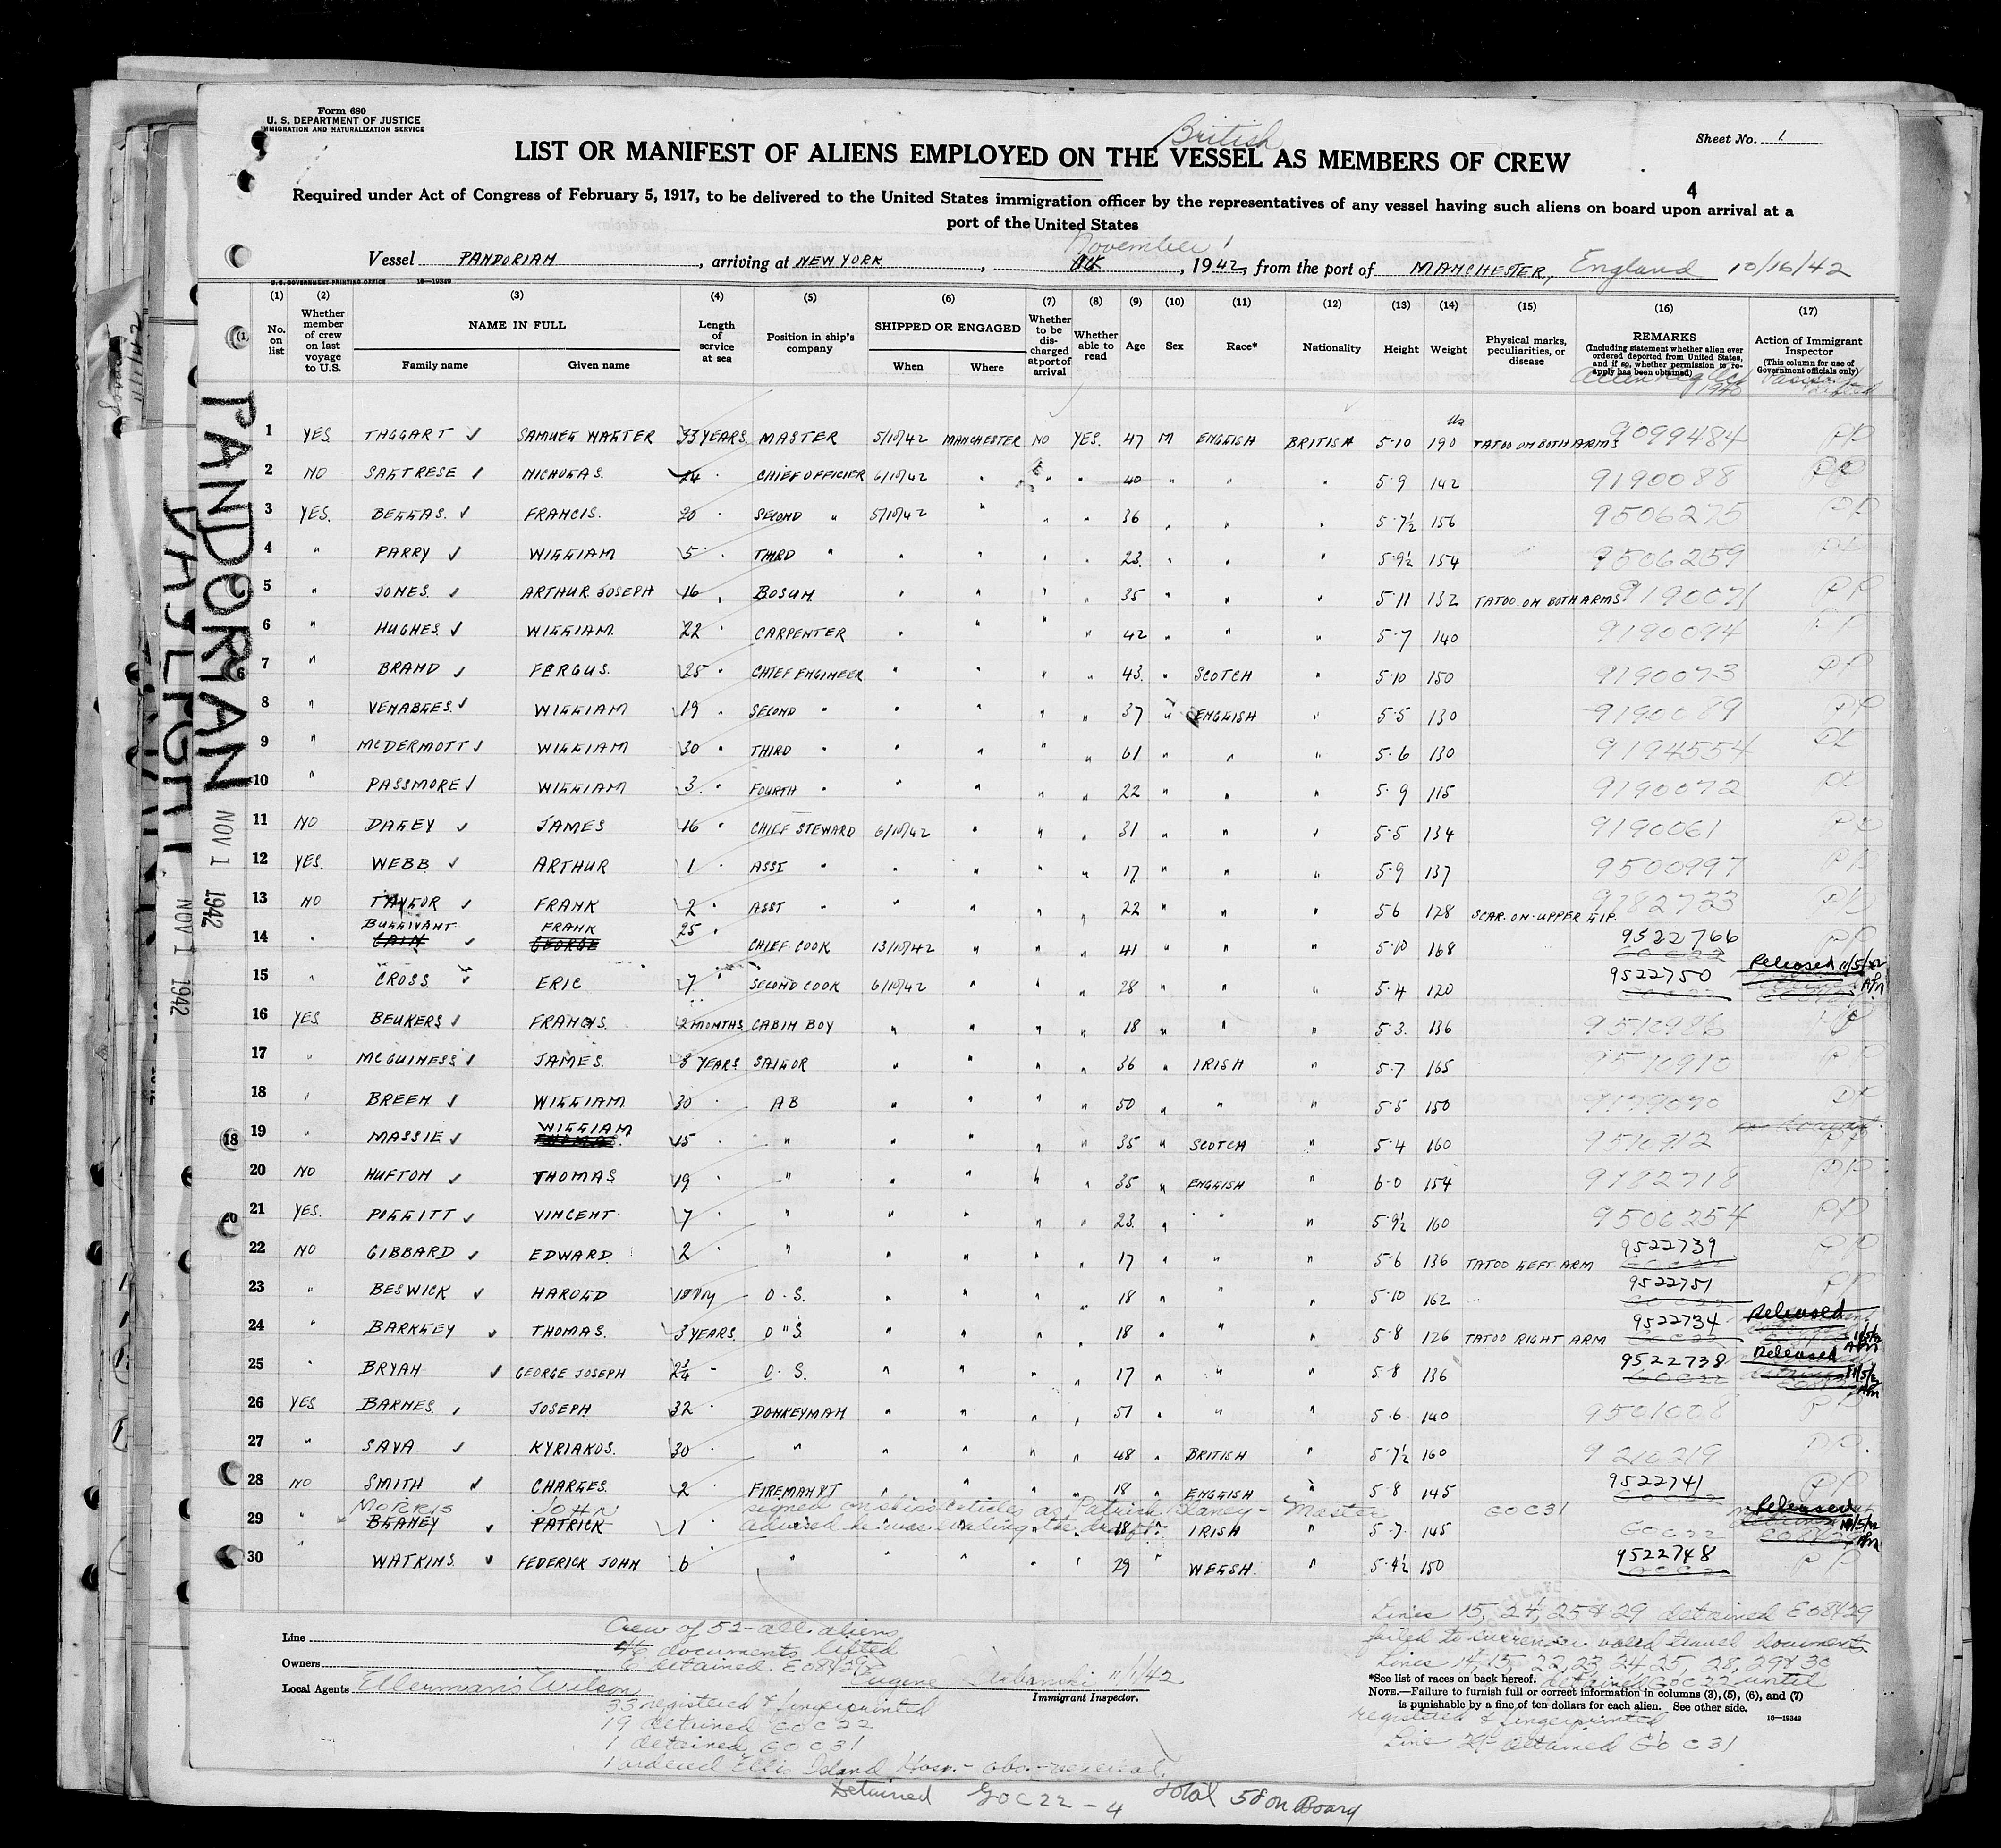 Form 680
U. S. DEPARTMENT OF JUSTICE
IMMIGRATION AND NATURALIZATION SERVICE
Sheet No. 1
British
LIST OR MANIFEST OF ALIENS EMPLOYED ON THE VESSEL AS MEMBERS OF CREW
4
Required under Act of Congress of February 5, 1917, to be delivered to the United States immigration officer by the representatives of any vessel having such aliens on board upon arrival at a
port of the United States
November 1
Vessel PANDORIAN, arriving at NEW YORK, 1942, from the port of MANCHESTER, England 10/16/42
U. S. GOVERNMENT PRINTING OFFICE 16—19349
(1) (2) (3) (4) (5) (6) (7) (8) (9) (10) (11) (12) (13) (14) (15) (16) (17)
No. on list
Whether member of crew on last voyage to U.S.
NAME IN FULL
Family name
Given name
Length of service at sea
Position in ship's company
SHIPPED OR ENGAGED
When
Where
Whether to be discharged at port of arrival
Whether able to read
Age
Sex
Race*
Nationality
Height
Weight
Physical marks, peculiarities, or disease
REMARKS
(Including statement whether alien ever ordered deported from United States, and if so, whether permission to reapply has been obtained)
Action of Immigrant Inspector
(This column for use of Government officials only)
Alien Reg Act 1940
1 YES TAGGART ✓ SAMUEL WALTER 33 YEARS MASTER 5/10/42 MANCHESTER NO YES. 47 M ENGLISH BRITISH 5·10 190 TATOO ON BOTH ARMS 9099484 PP
2 NO SALTRESE ✓ NICHOLAS. 24 " CHIEF OFFICIER 6/10/42 " " " 40 " " " 5·9 142 9190088 PP
3 YES. BELLAS. ✓ FRANCIS. 20 " SECOND " 5/10/42 " " " 36 " " " 5·7½ 156 9506275 PP
4 " PARRY ✓ WILLIAM 5 " THIRD " " " " " 23 " " " 5·9½ 154 9506259
5 " JONES. ✓ ARTHUR JOSEPH 16 " BOSUN. " " " " 35 " " " 5·11 132 TATOO ON BOTH ARMS 9190071 PP
6 " HUGHES ✓ WILLIAM 22 " CARPENTER " " " " 42 " " " 5·7 140 9190094 PP
7 " BRAND ✓ FERGUS. 25 " CHIEF ENGINEER " " " " 43 " SCOTCH " 5·10 150 9190073 PP
8 " VENABLES. ✓ WILLIAM 19 " SECOND " " " " " 37 " ENGLISH " 5·5 130 9190089 PP
9 " McDERMOTT ✓ WILLIAM 30 " THIRD " " " " " 61 " " " 5·6 130 9194554
10 " PASSMORE ✓ WILLIAM 3 " FOURTH " " " " " 22 " " " 5·9 115 9190072
11 NO DALEY ✓ JAMES 16 " CHIEF STEWARD 6/10/42 " " " 31 " " " 5·5 134 9190061 PP
12 YES. WEBB ✓ ARTHUR 1 " ASST " " " " " 17 " " " 5·9 137 9500997 PP
13 NO TAYLOR ✓ FRANK 2 " ASST " " " " " 22 " " " 5·6 128 SCAR. ON. UPPER LIP. 9182733
BULLIVANT FRANK 25 "
14 " CAIN ✓ GEORGE CHIEF COOK 13/10/42 " " " 41 " " " 5·10 168 9522766 PP
GOC22
15 " CROSS ✓ ERIC 7 " SECOND COOK 6/10/42 " " " 28 " " " 5·4 120 9522750 Released 11/5/42
16 YES BEUKERS ✓ FRANCIS. 2 MONTHS CABIN BOY " " " " 18 " " " 5·3 136 9512986
17 " McGUINESS ✓ JAMES. 3 YEARS SAILOR " " " " 36 " IRISH " 5·7 165 9510910 PP
18 " BREEN ✓ WILLIAM 30 " AB " " " " 50 " " " 5·5 150 9179070
WILLIAM
19 " MASSIE ✓ THOMAS. 15 " " " " " " 35 " SCOTCH " 5·4 160 9510912
20 NO HUFTON ✓ THOMAS 19 " " " " " " 35 " ENGLISH " 6·0 154 9182718 PP
21 YES. POLLITT ✓ VINCENT. 7 " " " " " " 23 " " " 5·9½ 160 9506254 PP
22 NO GIBBARD ✓ EDWARD 2 " " " " " " 17 " " " 5·6 136 TATOO LEFT. ARM 9522739 PP
23 " BESWICK ✓ HAROLD O. S. " " " " 18 " " " 5·10 162 9522751 PP
24 " BARKLEY ✓ THOMAS. 3 YEARS. O " S. " " " " 18 " " " 5·8 126 TATOO RIGHT ARM 9522734 Released 11/5/42
25 " BRYAN ✓ GEORGE JOSEPH 2¼ " O. S. " " " " 17 " " " 5·8 136 9522738 Released 11/5/42
26 YES BARNES JOSEPH 32 " DONKEYMAN " " " " 51 " " " 5·6 140 9501008
27 " SAVA ✓ KYRIAKOS. 30 " " " " " " 48 " BRITISH " 5·7½ 160 9210219 PP.
28 NO SMITH ✓ CHARLES. 2 " FIREMAN & T " " " " 18 " ENGLISH " 5·8 145 9522741 PP
MORRIS JOHN signed on ships articles as Patrick Blaney - Master GOC31 Released
29 " BLANEY ✓ PATRICK 1 " advised he was 18 " IRISH " 5·7 145 GOC22 11/5/42
30 " WATKINS. ✓ FEDERICK JOHN 6 " " " " " " 29 " WELSH. " 5·4½ 150 9522748 PP
GOC22
PANDORIAN
NOV 1 1942
NOV 1 1942
Line
Owners
Local Agents Ellerman's Wilson
Crew of 52 - all aliens
46 documents lifted
6 detained E08429
33 registered & fingerprinted
19 detained GOC22
1 detained GOC31
1 ordered Ellis Island Hosp.- obs.- venereal.
Eugene 11/1/42
Immigrant Inspector.
Lines 15, 24, 25 & 29 detained E08429
failed to surrender valid travel documents
Lines 14, 15, 22, 23, 24, 25, 28, 29 & 30
detained GOC22 until
registered & fingerprinted
Line 29 detained GOC31
*See list of races on back hereof.
NOTE.—Failure to furnish full or correct information in columns (3), (5), (6), and (7)
is punishable by a fine of ten dollars for each alien. See other side.
16—19349
Detained GOC22 - 4 Total 58 on Board